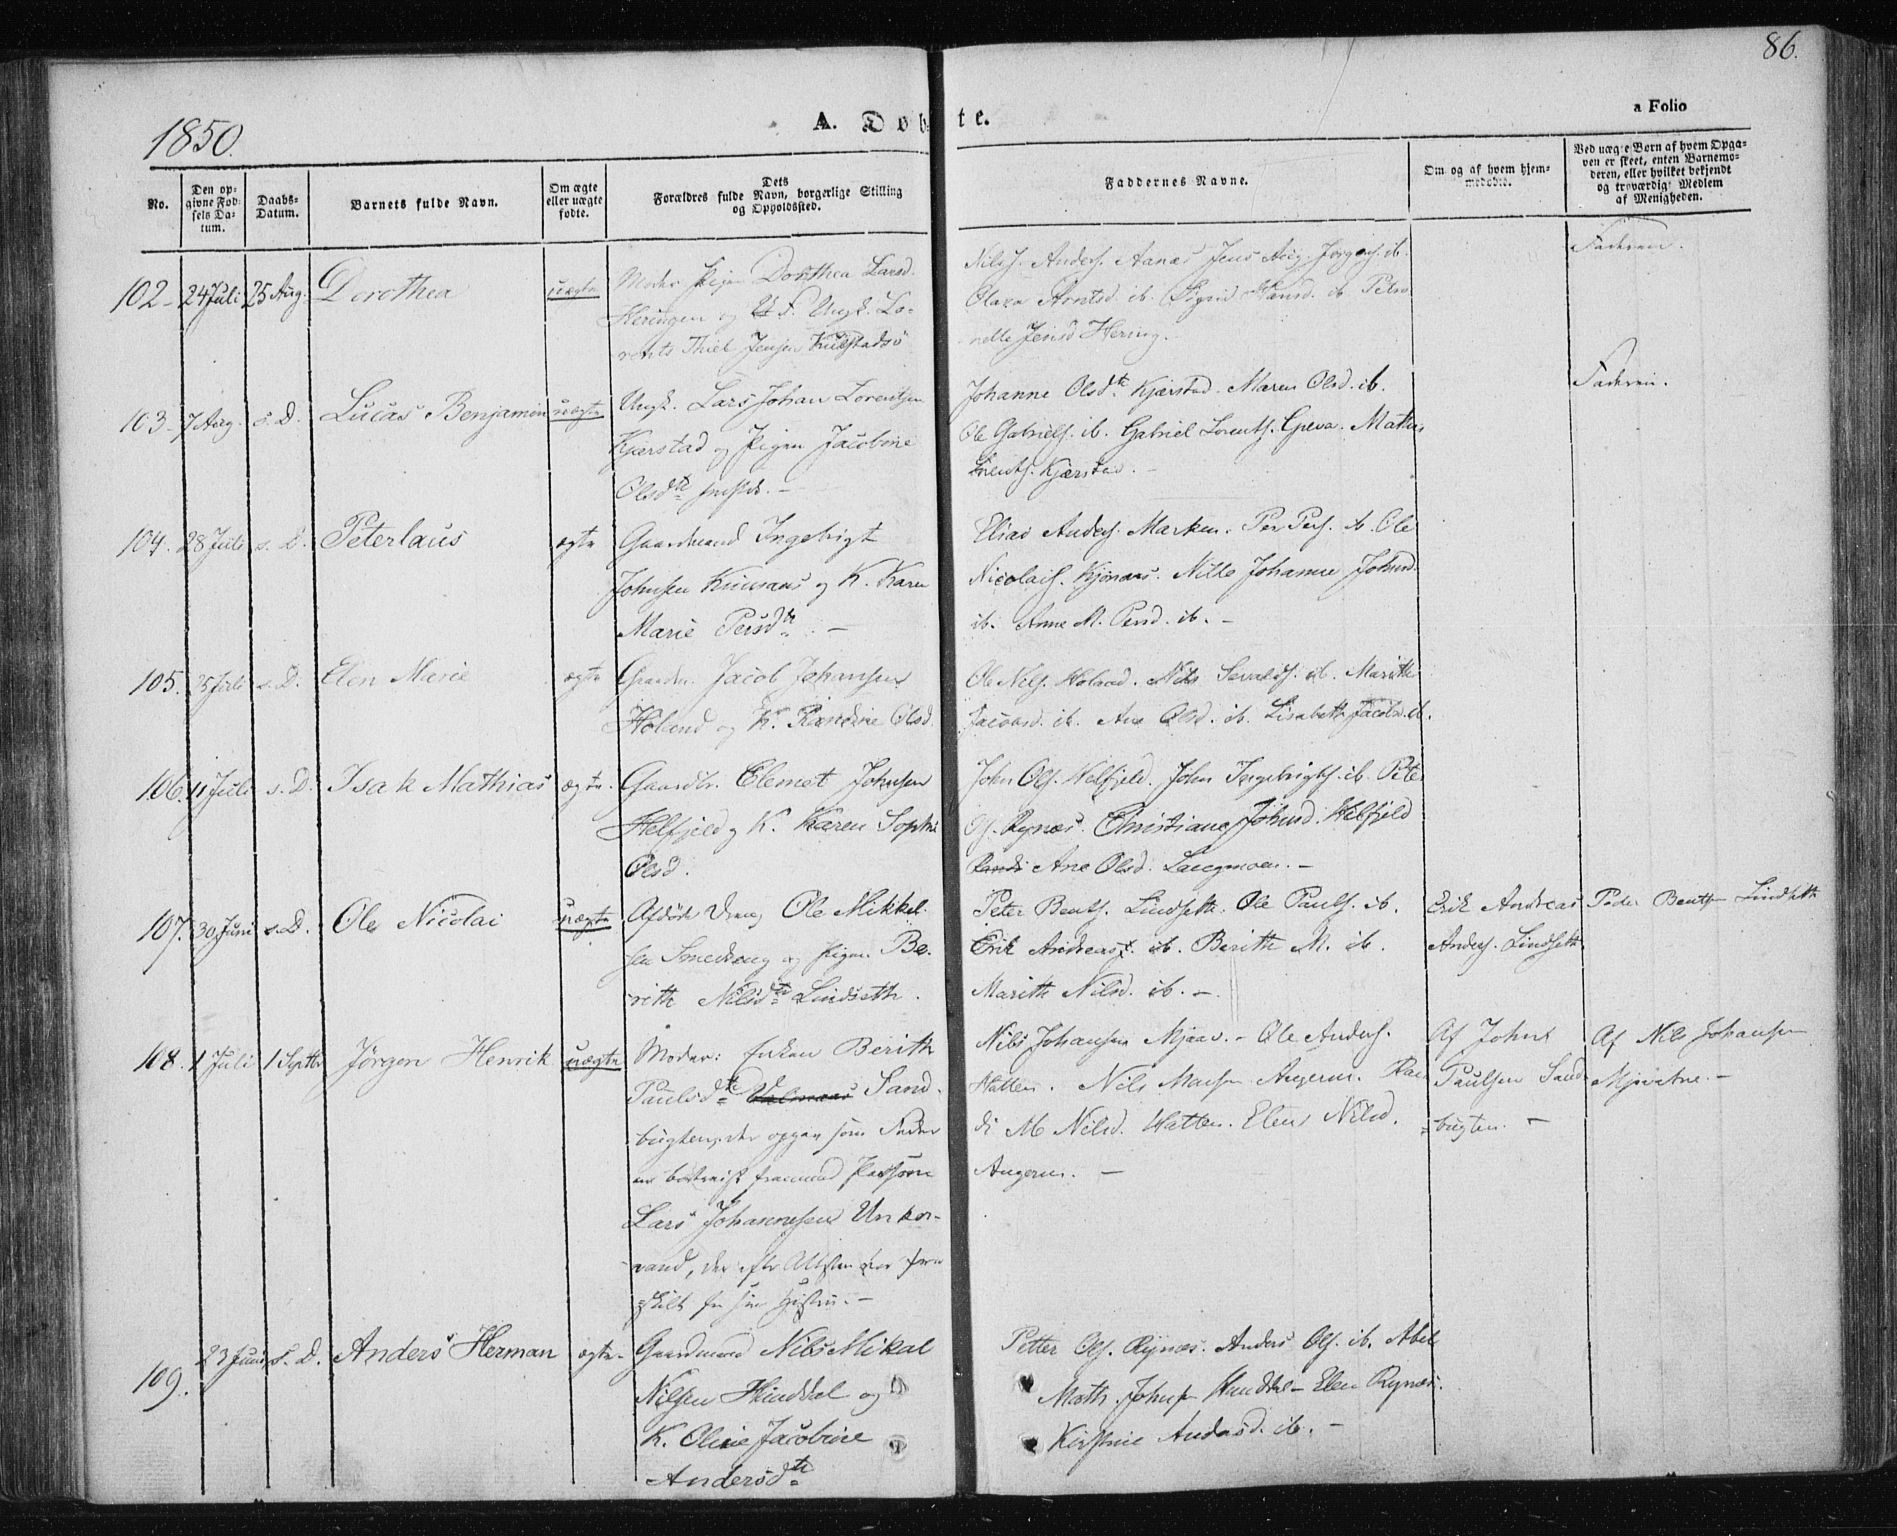 86.
1850.
A. Døbte.
a Folio
No.
Den opgivne Fødsels Datum.
Daabs-Datum.
Barnets fulde Navn.
Om ægte eller uægte fødte.
Dets Forældres fulde Navn, borgerlige Stilling og Opholdssted.
Faddernes Navne.
Om og af hvem hjemmedøbt.
Ved uægte Børn af hvem Opgaven er skeet, enten Barnemoderen, eller hvilket bekjendt og troværdigt Medlem af Menigheden.
102 24 Juli 25 Aug. Dorothea uægte
Moder Pigen Dorothea Larsd.
Heringen og U. F. Ungk. Lo-
rents Thiel Jensen
Nils Anders. Aanæs Jens Aug. Jørgens. ib.
Olava Arntsd. ib. Sigrid Hansd. ib Petro
nelle Jensd Hering.
Faderen.
103 7 Aug. s. D. Lucas Benjamin uægte
Ungk. Lars Johan Lorentsen
Kjærstad og Pigen Jacobine
Olsdtr
Johanne Olsdtr Kjærstad. Maren Olsd. ib.
Ole Gabriels. ib. Gabriel Lorents. Mathis
Lorents. Kjærstad.
Faderen.
104. 28 Juli s. D. Peterlaus ægte
Gaardmand Ingebrigt
Johnsen og K. Karen
Marie Persdtr. -
Elias Anders. Marken. Per Pers. ib. Ole
Nicolais. Nille Johanne Johnsd.
ib. Anne M. Persd. ib. -
105. 25 Juli s. D. Elen Marie ægte
Gaardm. Jacob Johansen
Holand og K. Randine Olsd.
Ole Nils. Holand. Nils ib. Marith
Jacobsd. ib. Ane Olsd. ib. Lisabeth Jacobsd. ib.
106. 11 Juli s. D. Isak Mathias ægte.
Gaardbr. Clemet Johnsen
Helfjeld og K. Karen Sophie
Olsd.
John Ols. Helfjeld. John Ingebrigts. ib. Peter
Ols. Rynæs. Christiane Johnsd. Helfjeld
Ane Olsd. Langmoen. -
107. 30 Juni s. D. Ole Nicolai uægte
Afdøde Dreng Ole Mikkel-
sen Smedseng og Pigen Be-
rith Nilsdtr Lindseth.
Peter Bents. Lindseth. Ole Pauls. ib.
Erik Andreas. ib. Berith M. ib.
Marith Nilsd. ib. -
Erik Andreas
Anders. Lindseth
Peder Bents Lindseth
108. 1 Juli 1 Septbr Jørgen Henrik uægte
Moder: Enken Berith
Paulsdtr Sand-
bugten, der opgav som Fader
en bortreist fremmed Person
Lars Johannesen Unkor-
vand, der efter Attesten var fra-
skilt fra sin Hustru. -
Nils Johansen Mjaav. - Ole Anders.
Hatten. Nils Angerm. Ran
di M Nilsd. Hatten. Elen Nilsd.
Angerm. -
Af Johns
Paulsen Sand-
bugten. -
Af Nils Johansen
Mjvatne. -
109. 23 Juni s. D. Anders Herman ægte
Gaardmand Nils Mikal
Nilsen Hunddal og
K. Oline Jacobine
Andersdtr
Petter Ols. Rynæs. Anders Ols. ib. Abel
Math. Johns Hunddal - Elen Rynæs.
Kirstine Andersd. ib. -